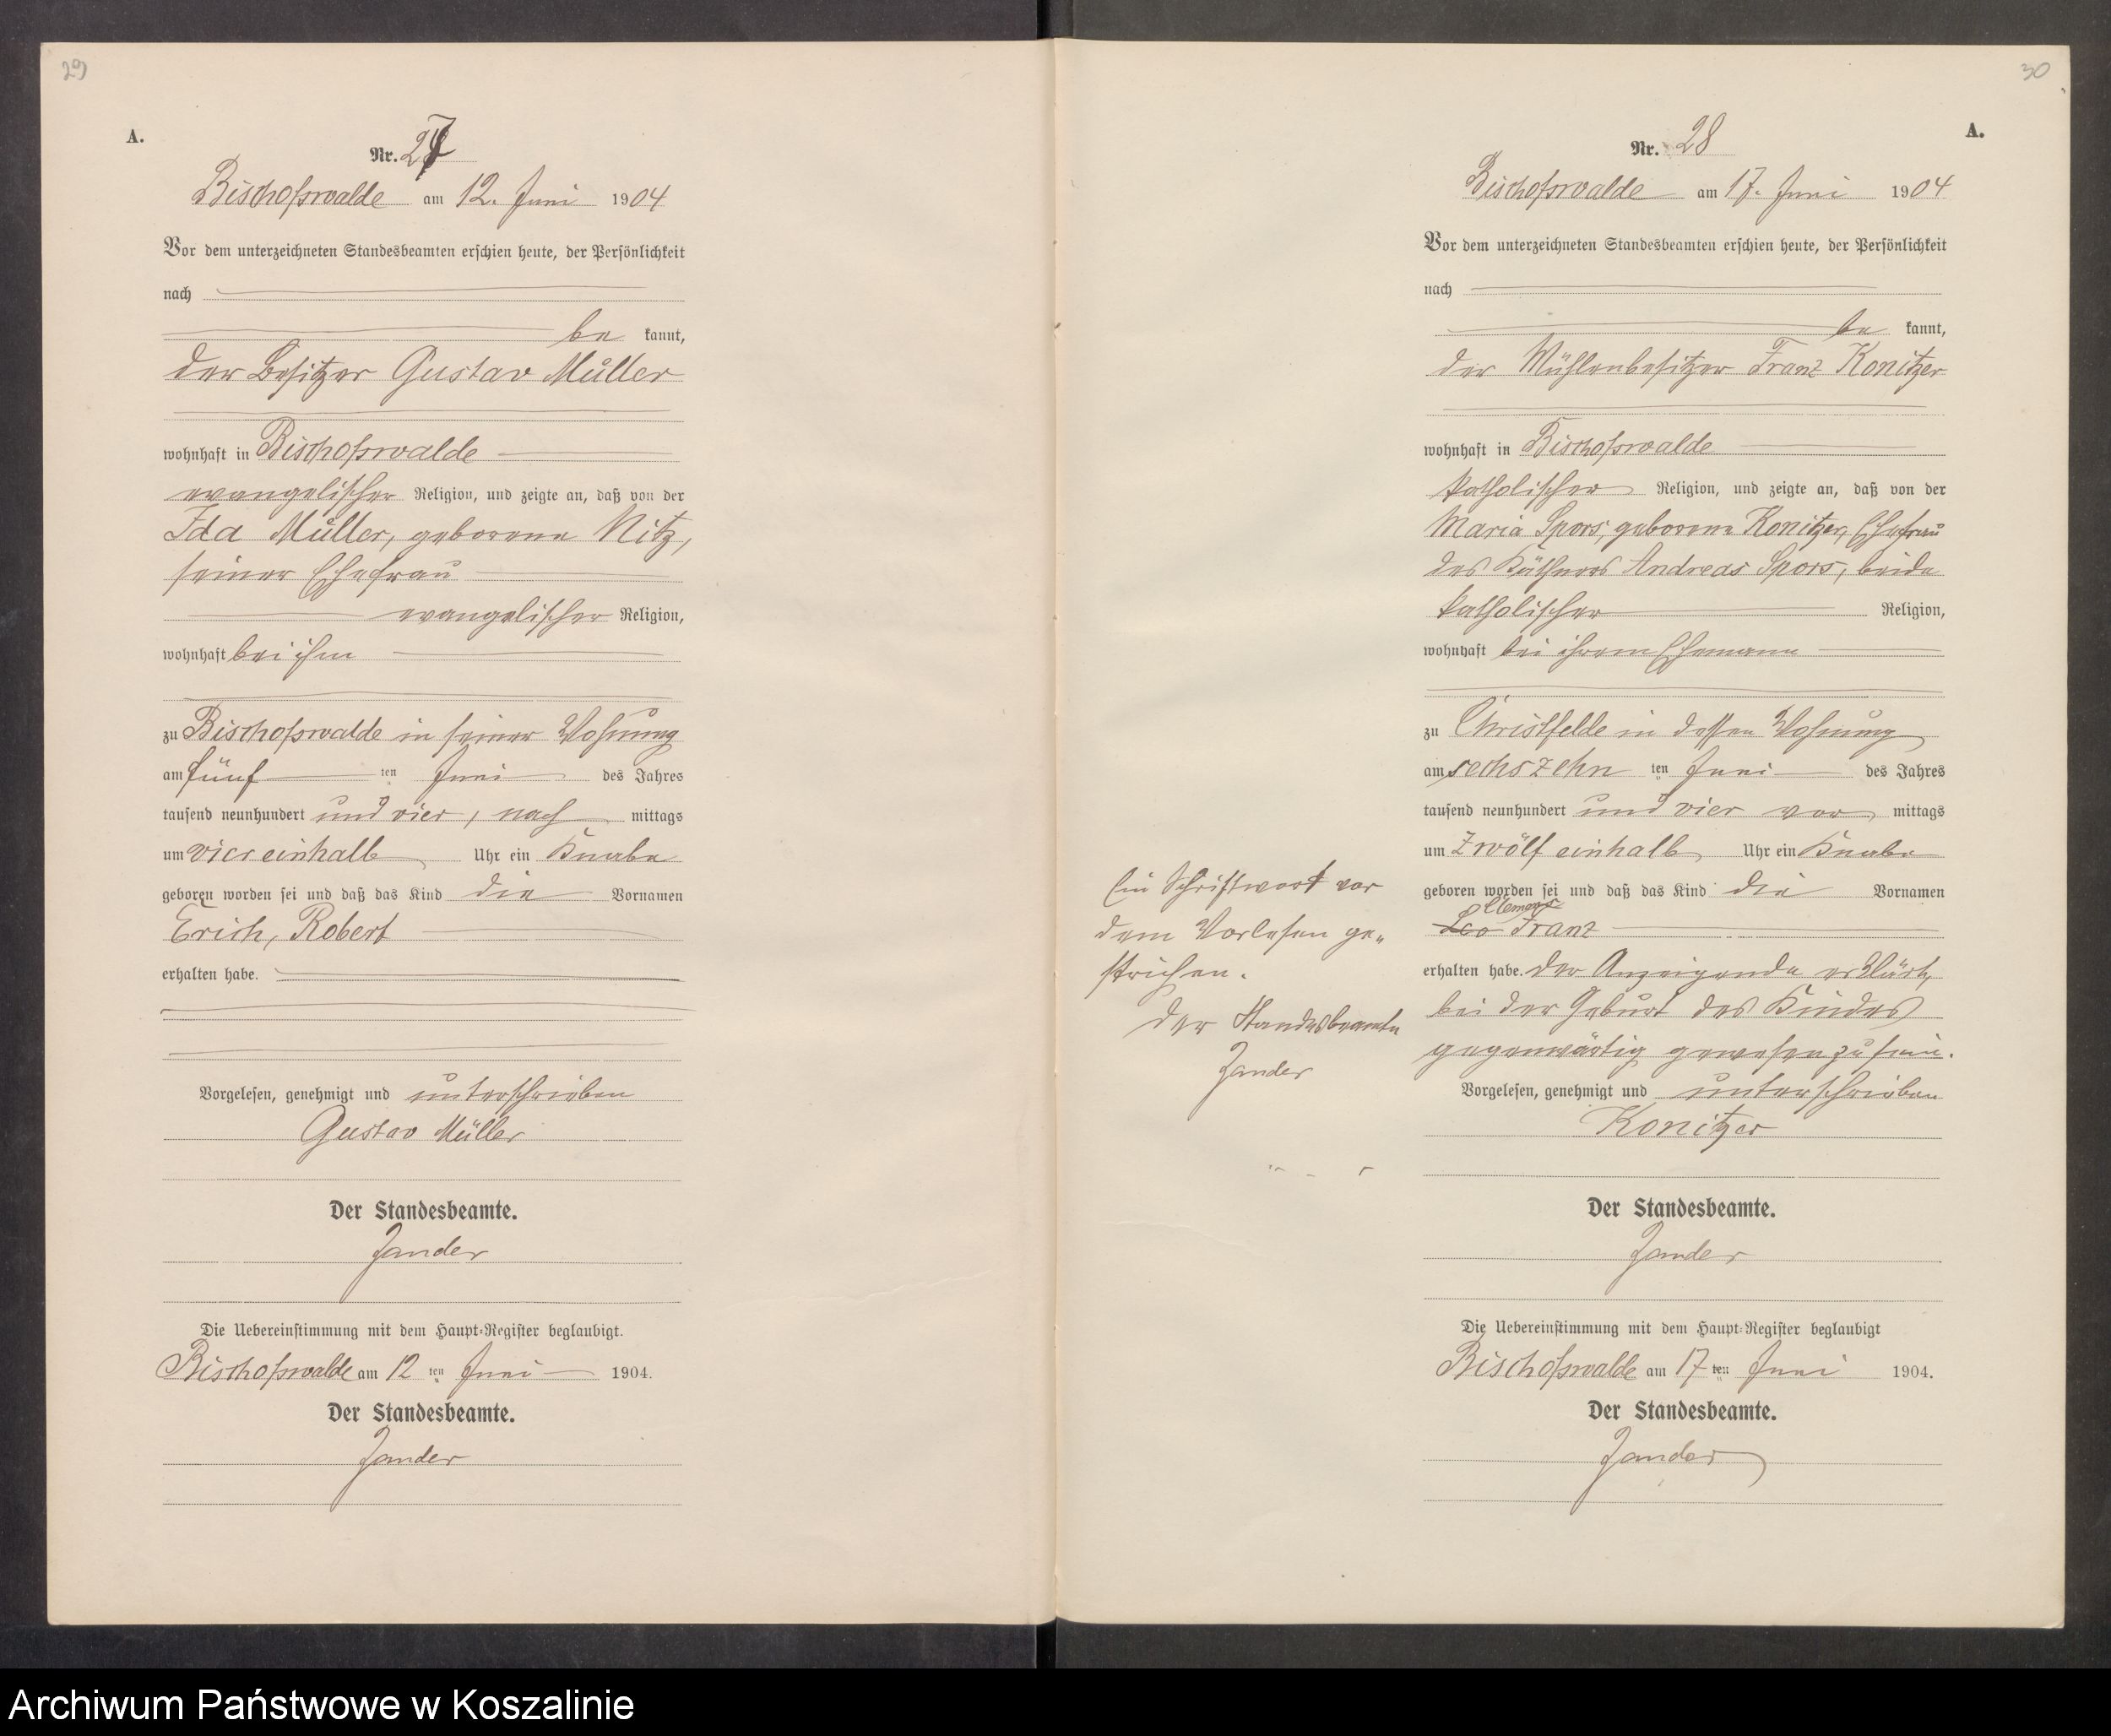 29
A.
Nr. 27
Bischofswalde am 12. Juni 1904
Vor dem unterzeichneten Standesbeamten erschien heute, der Persönlichkeit
nach
be kannt,
der Besitzer Gustav Müller
wohnhaft in Bischofswalde
evangelischer Religion, und zeigte an, daß von der
Ida Müller, geborene Nitz,
seiner Ehefrau
evangelischer Religion,
wohnhaft bei ihm
zu Bischofswalde in seiner Wohnung
am fünf ten Juni des Jahres
tausend neunhundert und vier, nach mittags
um vier einhalb Uhr ein Knabe
geboren worden sei und daß das Kind die Vornamen
Erich, Robert
erhalten habe.
Vorgelesen, genehmigt und unterschrieben
Gustav Müller
Der Standesbeamte.
Zander
Die Uebereinstimmung mit dem Haupt-Register beglaubigt.
Bischofswalde am 12 ten Juni 1904.
Der Standesbeamte.
Zander
30
A.
Nr. 28
Bischofswalde am 17. Juni 1904
Vor dem unterzeichneten Standesbeamten erschien heute, der Persönlichkeit
nach
be kannt,
der Mühlenbesitzer Franz Konitzer
wohnhaft in Bischofswalde
katholischer Religion, und zeigte an, daß von der
Maria Spors, geborene Konitzer, Ehefrau
des Käthners Andreas Spors, beide
katholischer Religion,
wohnhaft bei ihrem Ehemann
zu Christfelde in dessen Wohnung
am sechszehn ten Juni des Jahres
tausend neunhundert und vier vor mittags
um zwölf einhalb Uhr ein Knabe
geboren worden sei und daß das Kind die Vornamen
Clemens
Leo Franz
erhalten habe. Der Anzeigende erklärt,
bei der Geburt des Kindes
gegenwärtig gewesen zu sein.
Vorgelesen, genehmigt und unterschrieben
Konitzer
Der Standesbeamte.
Zander
Die Uebereinstimmung mit dem Haupt-Register beglaubigt
Bischofswalde am 17 ten Juni 1904.
Der Standesbeamte.
Zander
Ein Schriftwort vor
dem Vorlesen ge-
strichen.
Der Standesbeamte
Zander
Archiwum Państwowe w Koszalinie